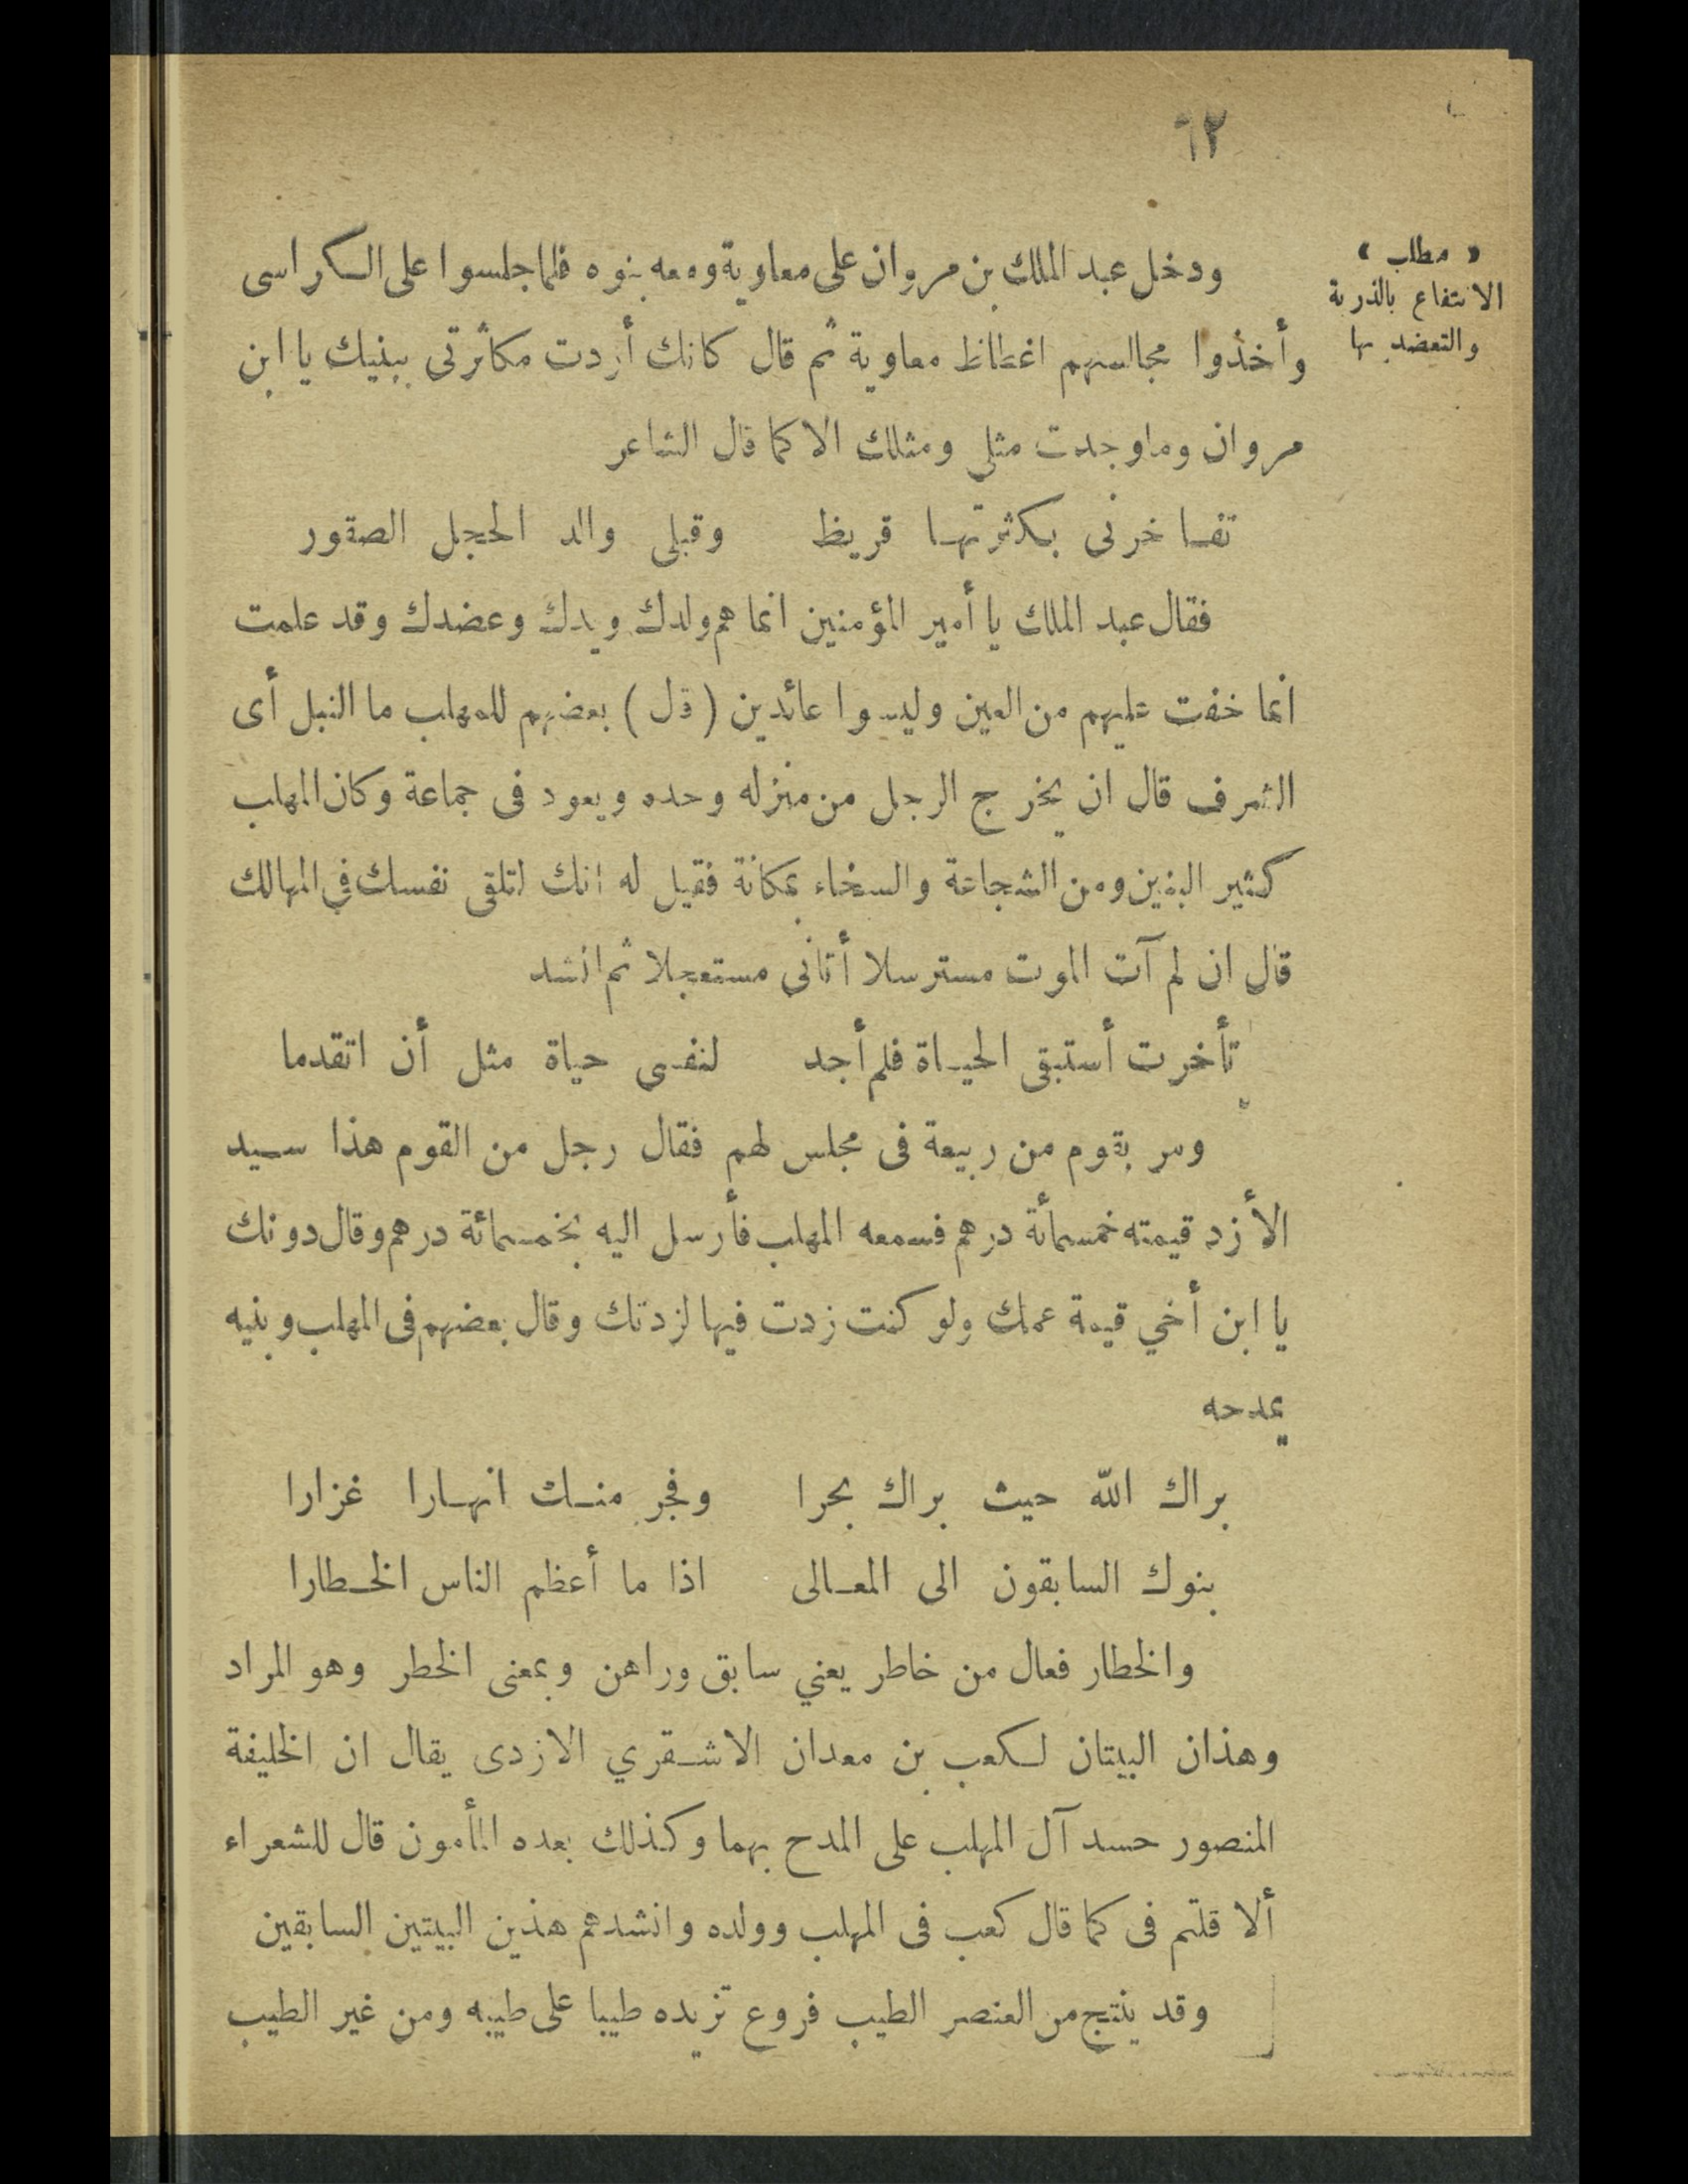 ٦٢
« مطلب »
الانتفاع بالذرية
والتعضد بها
ودخل عبد الملك بن مروان على معاوية ومعه بنوه فلما جلسوا على الكراسى
وأخذوا مجالسهم اغتاظ معاوية ثم قال كانك أردت مكاثرتى ببنيك يا ابن
مروان وما وجدت مثلى ومثلك الا كما قال الشاعر
تفاخرنى بكثرتها قريظ وقبلى والد الحجل الصقور
فقال عبد الملك يا أمير المؤمنين انما هم ولدك ويدك وعضدك وقد علمت
انما خفت عليهم من العين وليسوا عائدين (قل) بعضهم للمهلب ما النبل أى
الشرف قال ان يخرج الرجل من منزله وحده ويعود فى جماعة وكان المهلب
كثير البنين ومن الشجاعة والسخاء بمكانة فقيل له انك لتلقى نفسك في المهالك
قال ان لم آت الموت مسترسلا أتانى مستعجلا ثم انشد
تأخرت أستبقى الحياة فلم أجد لنفسى حياة مثل أن اتقدما
ومر بقوم من ربيعة فى مجلس لهم فقال رجل من القوم هذا سيد
الأزد قيمته خمسمأئة درهم فسمعه المهلب فأرسل اليه بخمسمائة درهم وقال دونك
يا ابن أخي قيمة عمك ولو كنت زدت فيها لزدتك وقال بعضهم فى المهلب وبنيه
يمدحه
براك الله حيث براك بحرا وفجر منك انهارا غزارا
بنوك السابقون الى المعالى اذا ما أعظم الناس الخطارا
والخطار فعال من خاطر يعني سابق وراهن وبمعنى الخطر وهو المراد
وهذان البيتان لكعب بن معدان الاشقري الازدى يقال ان الخليفة
المنصور حسد آل المهلب على المدح بهما وكذلك بعده المأمون قال للشعراء
ألا قلتم فى كما قال كعب فى المهلب وولده وانشدهم هذين البيتين السابقين
وقد ينتج من العنصر الطيب فروع تزيده طيبا على طيبه ومن غير الطيب